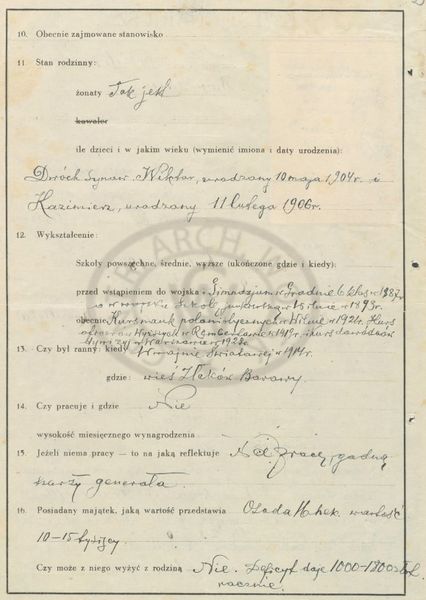 10. Obecnie zajmowane stanowisko
11. Stan rodzinny:
żonaty Tak jest
kawaler
ile dzieci i w jakim wieku (wymienić imiona i daty urodzenia):
Dwóch synów Wiktor, urodzony 10 maja 1904 r. i
Kazimierz, urodzony 11 lutego 1906 r.
12. Wykształcenie:
Szkoły powszechne, średnie, wyższe (ukończone gdzie i kiedy):
przed wstąpieniem do wojska: Gimnazjum w Grodnie 6 klas w 1887 r.
w Wilnie w 1893 r.
obecnie Kurs nauk w Wilnie w 1921 r. Kurs
oficerów wyższych w Rembertowie w i kurs dowódców
dywizyj w Warszawie w 1923 r.
13. Czy był ranny: kiedy W wojnie światowej w 1914 r.
gdzie: wieś
14. Czy pracuje i gdzie Nie
wysokość miesięcznego wynagrodzenia
15. Jeżeli niema pracy — to na jaką reflektuje Na pracę, godną
szarży generała.
16. Posiadany majątek, jaką wartość przedstawia Osada hek. wartość
10-15 tysięcy
Czy może z niego wyżyć z rodziną Nie. Deficyt daje 1000-1800 zł.
rocznie.